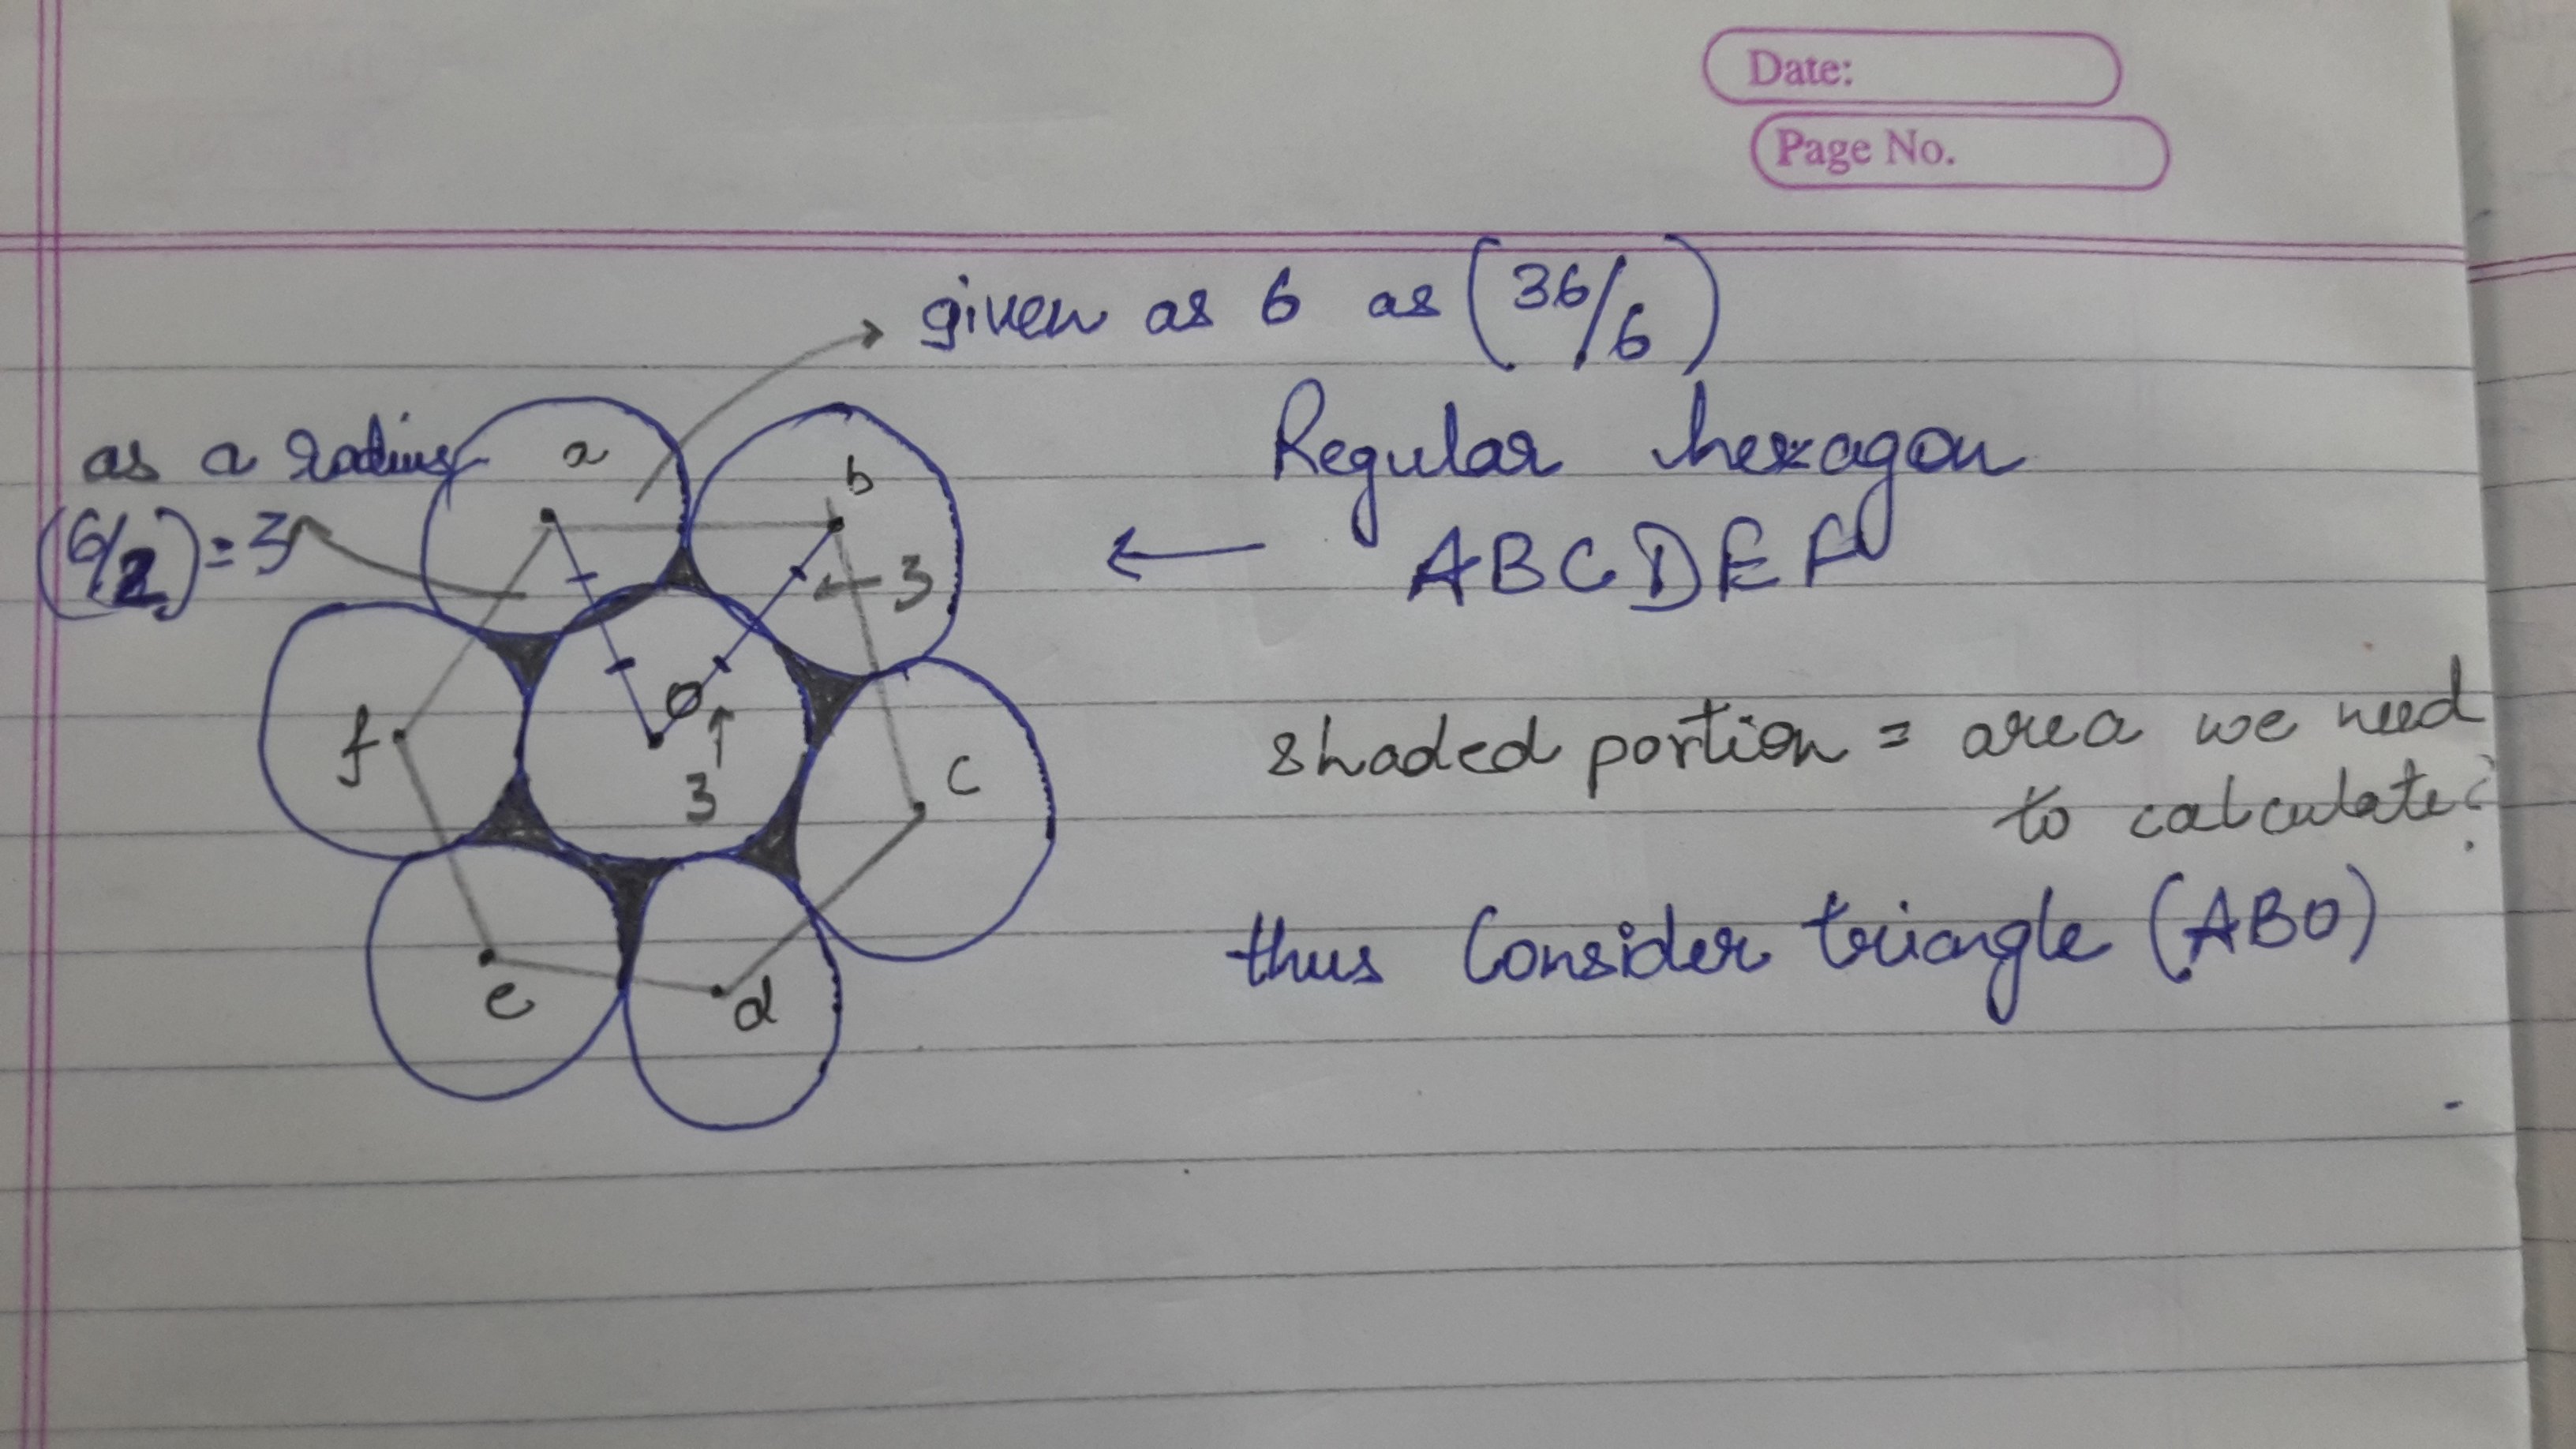 Date:
Page No.
given as 6 as (36/6)
as a radius
(6/2) = 3
a
b
3
Regular hexagon
ABCDEF
f
O
3
c
shaded portion = area we need
to calculate?
e
d
thus Consider triangle (ABO)